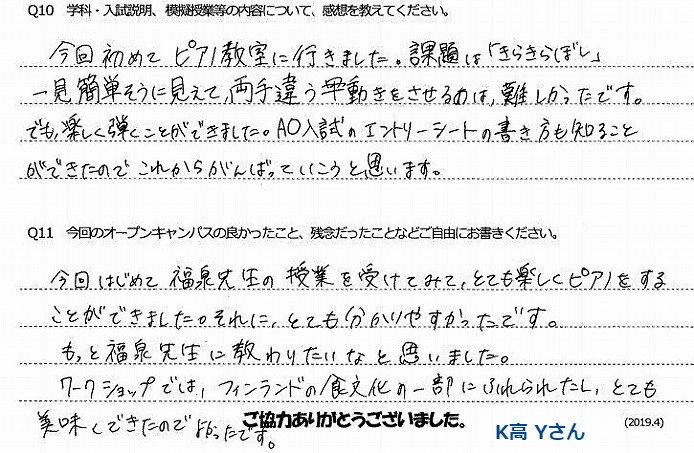 Q10　学科・入試説明、模擬授業等の内容について、感想を教えてください。
今回初めてピアノ教室に行きました。課題は「きらきらぼし」
一見簡単そうに見えて、両手違う動きをさせるのは、難しかったです。
でも、楽しく弾くことができました。AO入試のエントリーシートの書き方も知ること
ができたのでこれからがんばっていこうと思います。
Q11　今回のオープンキャンパスの良かったこと、残念だったことなどご自由にお書きください。
今回はじめて福泉先生の授業を受けてみて、とても楽しくピアノをする
ことができました。それに、とても分かりやすかったです。
もっと福泉先生に教わりたいなと思いました。
ワークショップでは、フィンランドの食文化の一部にふれられたし、とても
美味しくできたのでよかったです。
ご協力ありがとうございました。
K高 Yさん
(2019.4)